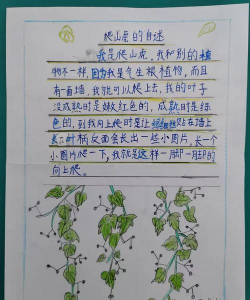 爬山虎的自述
我是爬山虎,我和别的植
物不一样,因为我是气生根植物,而且
有一面墙,我就可以爬上去,我的叶子
没成熟时是嫩红色的,成熟时是绿
色的,到我向上爬时是让贴在墙上
叶柄反面会长出一些小圆片,长一个
小圆片爬一下,我就是这样一脚一脚的
向上爬。